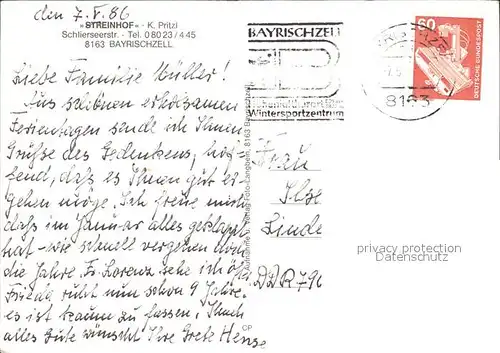 den 7. V. 86
»STREINHOF« - K. Pritzl
Schlierseerstr. - Tel. 0 80 23 / 4 45
8163 BAYRISCHZELL
Liebe Familie Müller!
Aus schönen erholsamen
Ferientagen sende ich Ihnen
Grüße des Gedenkens, hof-
fend, daß es Ihnen gut er-
gehen möge. Ich freue mich
daß im Januar alles geklappt
hat - wie schnell vergehen doch
die Jahre. Fr. Lorenz sehe ich öft
Frieda ruht nun schon 9 Jahre.
es ist kaum zu fassen. Ihnen
alles Gute wünscht Ihre Grete Hense
BAYRISCHZELL
Wintersportzentrum
8163
60
DEUTSCHE BUNDESPOST
Frau
Ilse
Linde
DDR 796
CP
privacy protection
Datenschutz